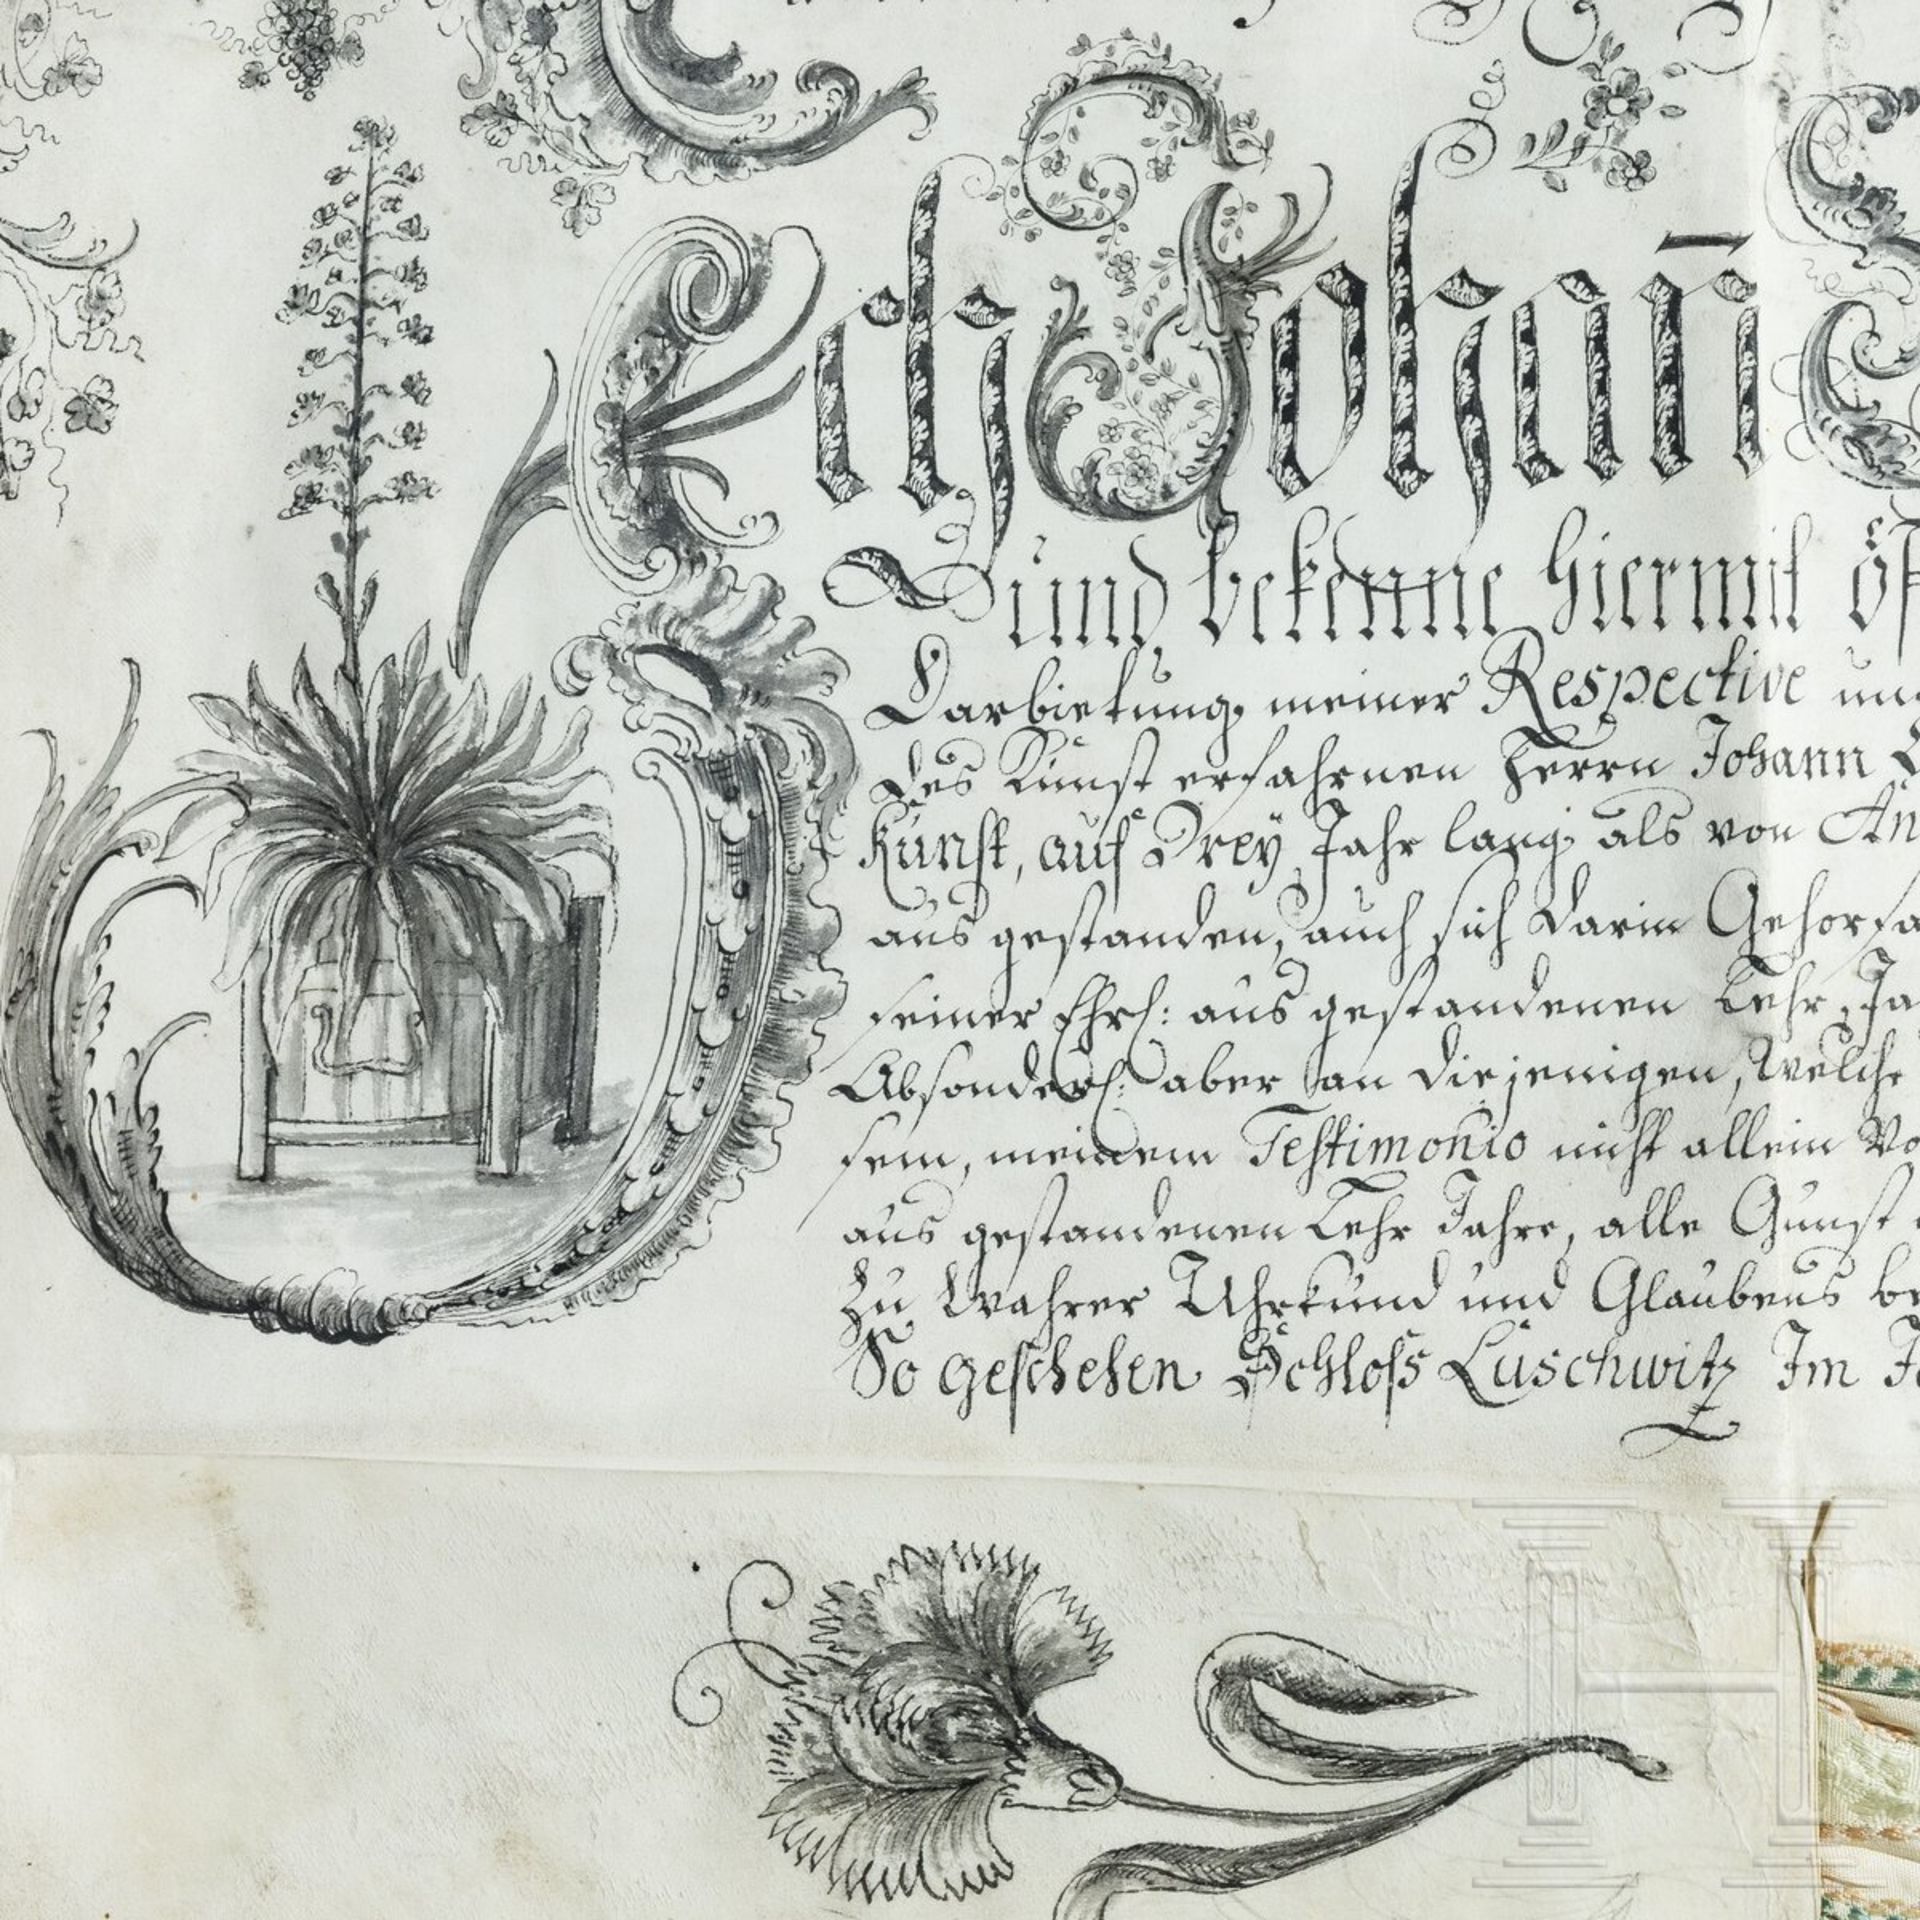 Ich Johan̄
Und bekenne hiermit öf
Darbietung meiner Respective und
des Kunst erfahrnen Herrn Johann
Kunst, auf Drey Jahr lang, als von An
aus gestanden, auch sich darin Gehorsa
seiner Ehrl: aus gestandenen Lehr Ja
Absonderl: aber an diejenigen, Welche
sem, meinem Testimonio nicht allein Vo
aus gestandenen Lehr Jahre, alle Gunst
Zu Wahrer Uhrkund und Glaubens be
So geschehen Schloss Lüschwitz Im J